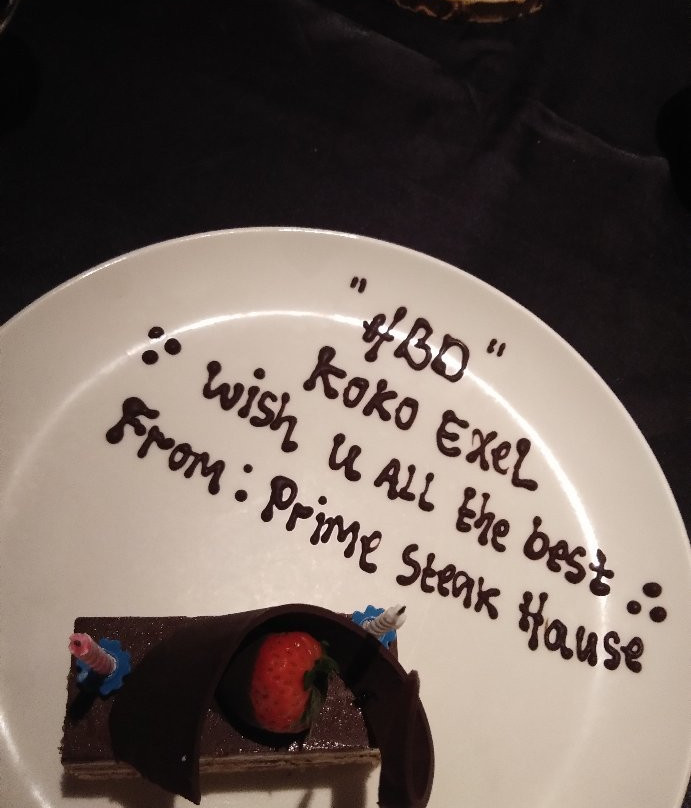 "HBD"
KOKO EXEL
wish u All the best
From : Prime Steak Hause